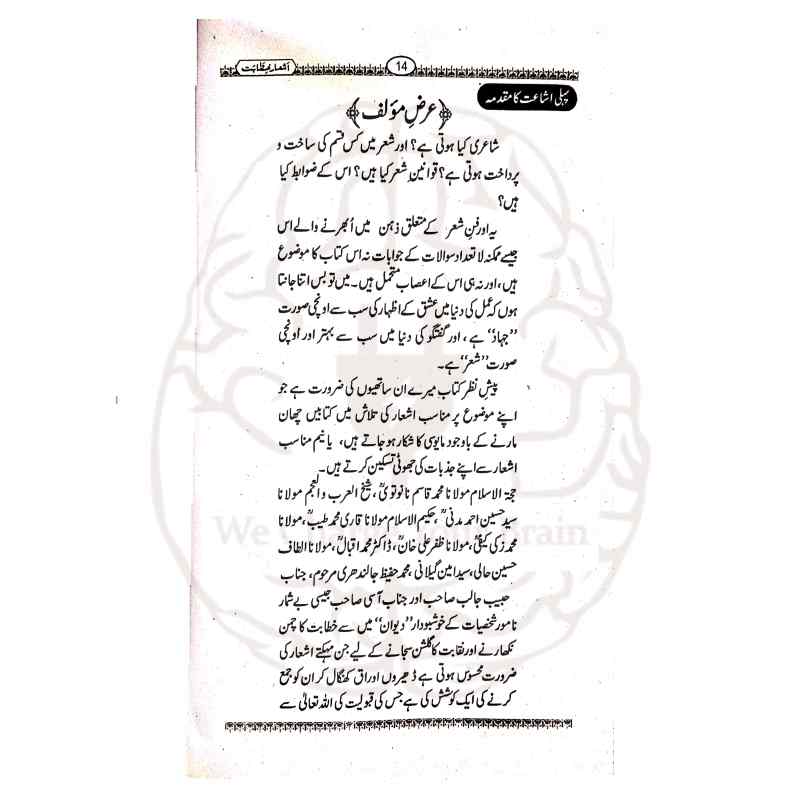 اشعارِ خطابت
14
پہلی اشاعت کا مقدمہ
﴿عرضِ مؤلف﴾
شاعری کیا ہوتی ہے؟ اور شعر میں کس قسم کی ساخت و
پرداخت ہوتی ہے؟ قوانینِ شعر کیا ہیں؟ اس کے ضوابط کیا
ہیں؟
یہ اور فنِ شعر کے متعلق ذہن میں اُبھرنے والے اس
جیسے ممکنہ لاتعداد سوالات کے جوابات نہ اس کتاب کا موضوع
ہیں، اور نہ ہی اس کے اعصاب متحمل ہیں۔ میں تو بس اتنا جانتا
ہوں کہ عمل کی دنیا میں عشق کے اظہار کی سب سے اونچی صورت
”جہاد“ ہے، اور گفتگو کی دنیا میں سب سے بہتر اور اُونچی
صورت ”شعر“ ہے۔
پیشِ نظر کتاب میرے ان ساتھیوں کی ضرورت ہے جو
اپنے موضوع پر مناسب اشعار کی تلاش میں کتابیں چھان
مارنے کے باوجود مایوسی کا شکار ہو جاتے ہیں، یا نیم مناسب
اشعار سے اپنے جذبات کی جھوٹی تسکین کرتے ہیں۔
حجۃ الاسلام مولانا محمد قاسم نانوتویؒ، شیخ العرب والعجم مولانا
سید حسین احمد مدنیؒ، حکیم الاسلام مولانا قاری محمد طیبؒ، مولانا
محمد زکی کیفیؒ، مولانا ظفر علی خانؒ، ڈاکٹر محمد اقبالؒ، مولانا الطاف
حسین حالی، سید امین گیلانی، محمد حفیظ جالندھری مرحوم، جناب
حبیب جالب صاحب اور جناب آسی صاحب جیسی بے شمار
نامور شخصیات کے خوشبودار ”دیوان“ میں سے خطابت کا چمن
نکھارنے اور نقابت کا گلشن سجانے کے لیے جن مہکتے اشعار کی
ضرورت محسوس ہوتی ہے ڈھیروں اوراق کھنگال کر ان کو جمع
کرنے کی ایک کوشش کی ہے جس کی قبولیت کی اللہ تعالیٰ سے